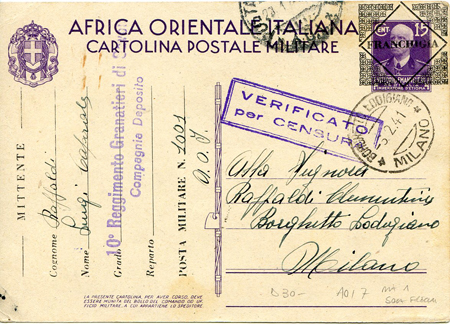 AFRICA ORIENTALE ITALIANA
CARTOLINA POSTALE MILITARE
CENT. 15
FRANCHIGIA
VERIFICATO
per CENSURA
BORGHETTO LODIGIANO
MILANO
5.2.41
MITTENTE
Cognome Raffaldi
Nome Luigi
Grado
Reparto
10° Reggimento Granatieri di
Compagnia Deposito
POSTA MILITARE N. 1001
A. O. I.
Alla Signora
Raffaldi Clementina
Borghetto Lodigiano
Milano
LA PRESENTE CARTOLINA, PER AVER CORSO, DEVE
ESSERE MUNITA DEL BOLLO DEL COMANDO OD UF-
FICIO MILITARE A CUI APPARTIENE LO SPEDITORE
AOI 7